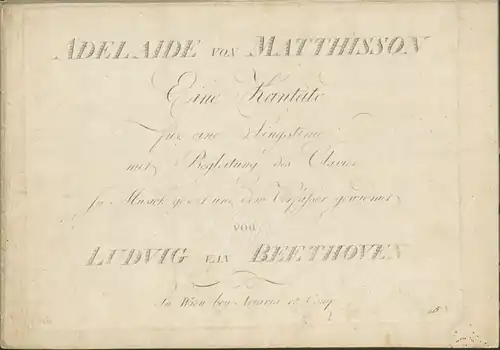 ADELAIDE VON MATTHISSON
Eine Kantate
für eine Singstimme
mit Begleitung des Clavier
In Musick gesetzt und dem Verfasser gewidmet
von
LUDVIG van BEETHOVEN
In Wien bey Artaria et Comp